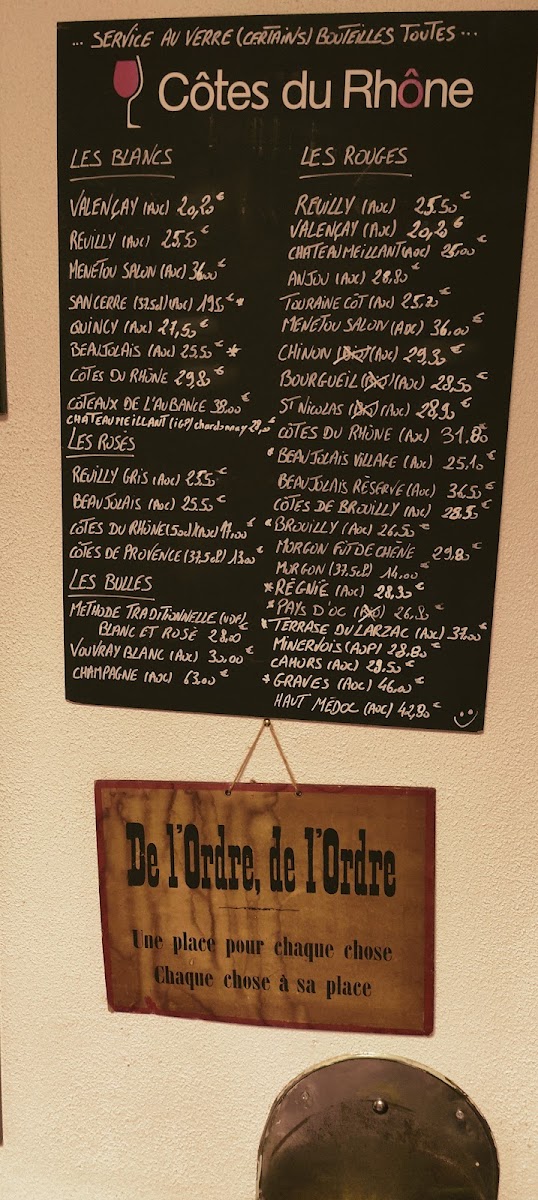 ... SERVICE AU VERRE (CERTAINS) BOUTEILLES TOUTES ...
Côtes du Rhône
LES BLANCS
VALENÇAY (AOC) 20,20€
REUILLY (AOC) 25,50€
MENETOU SALON (AOC) 36,00€
SANCERRE (37.5cl) (AOC) 19,5€*
QUINCY (AOC) 27,50€
BEAUJOLAIS (AOC) 25.50€*
CÔTES DU RHÔNE 29,80€
CÔTEAUX DE L'AUBANCE 38.00€
CHATEAUMEILLANT (IGP) chardonnay
LES ROSÉS
REUILLY GRIS (AOC) 25.50€
BEAUJOLAIS (AOC) 25.50€
CÔTES DU RHÔNE (50cl) (AOC) 17,00€
CÔTES DE PROVENCE (37,5cl) 13.00€
LES BULLES
METHODE TRADITIONNELLE
BLANC ET ROSÉ 28.00€
VOUVRAY BLANC (AOC) 30,00€
CHAMPAGNE (AOC) 63.00€
LES ROUGES
REUILLY (AOC) 25.50€
VALENÇAY (AOC) 20,20€
CHATEAUMEILLANT (AOC) 25,00€
ANJOU (AOC) 28,80€
TOURAINE CÔT (AOC) 25,20€
MENETOU SALON (AOC) 36,00€
CHINON (AOC) 29,30€
BOURGUEIL (AOC) 28,50€
ST NICOLAS (AOC) 28,90€
CÔTES DU RHÔNE (AOC) 31.80€
* BEAUJOLAIS VILLAGE (AOC) 25,10€
BEAUJOLAIS RÉSERVE (AOC) 36,50€
CÔTES DE BROUILLY (AOC) 28.50€
* BROUILLY (AOC) 26.50€
MORGON FÛT DE CHÊNE 29,80€
MORGON (37.5cl) 14,00€
* RÉGNIÉ (AOC) 28,30€
* PAYS D'OC 26,80€
* TERRASE DU LARZAC (AOC) 37.00€
MINERVOIS (AOP) 28,80€
CAHORS (AOC) 29.50€
* GRAVES (AOC) 46,00€
HAUT MÉDOC (AOC) 42,80€
De l'Ordre, de l'Ordre
Une place pour chaque chose
Chaque chose à sa place